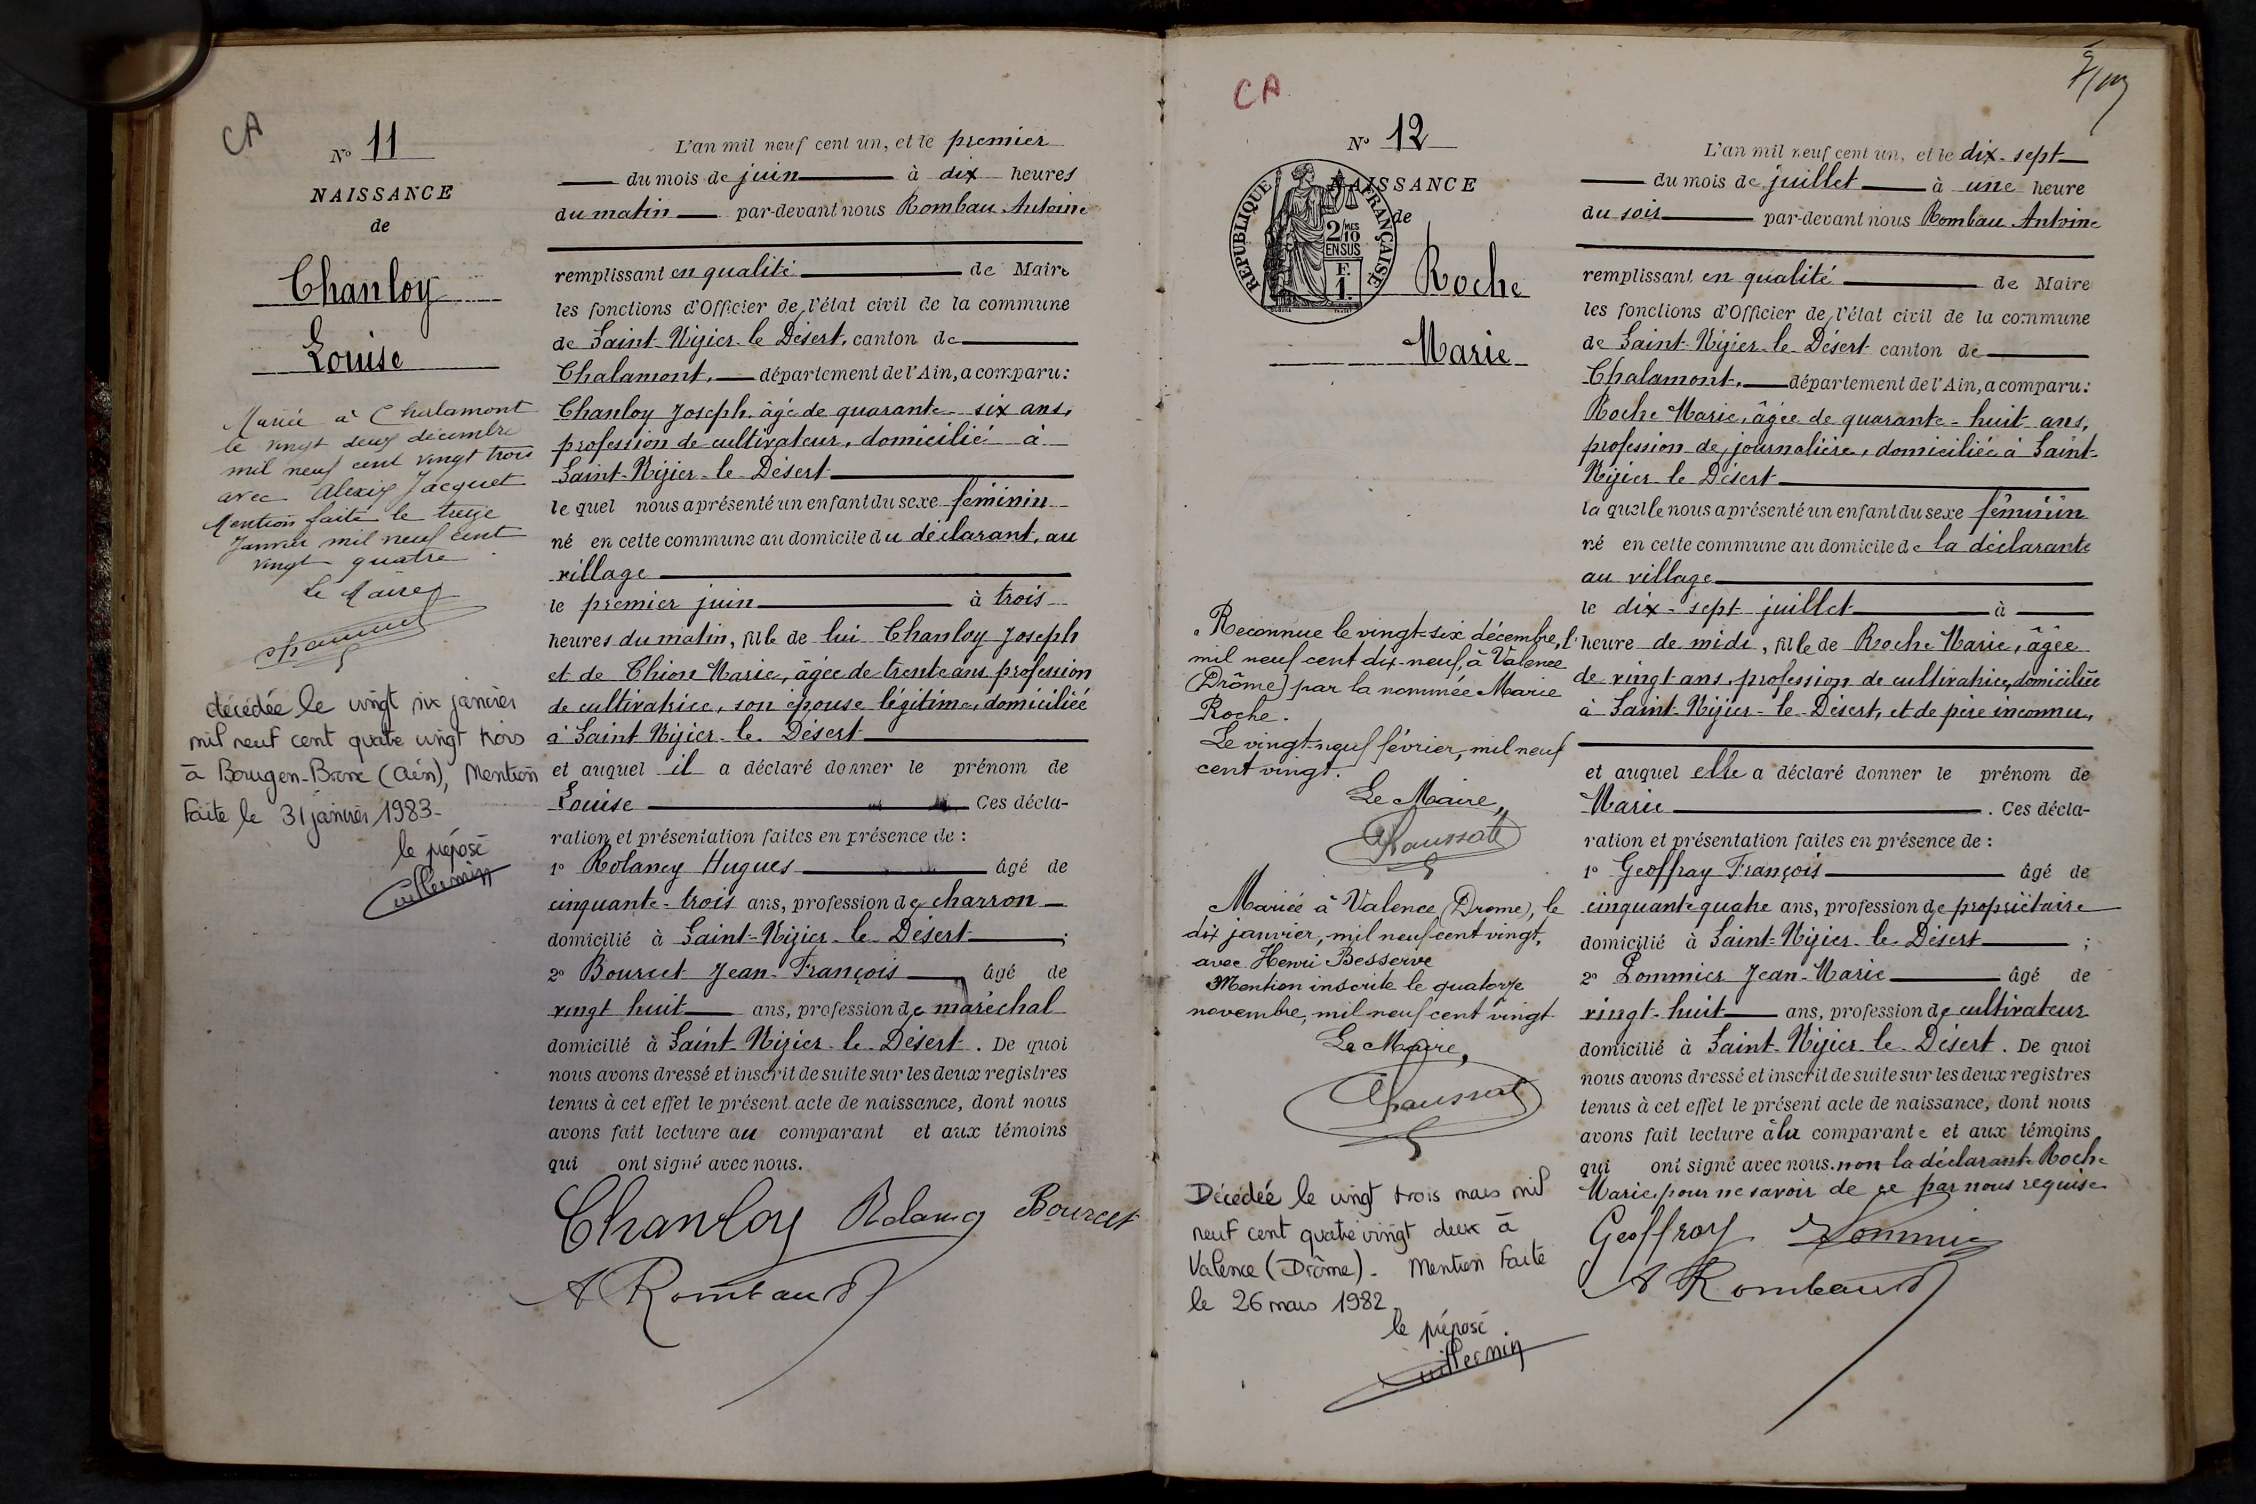 CA
Nº 11
NAISSANCE
de
Chanloy
Louise
Mariée à Chalamont
le vingt deux décembre
mil neuf cent vingt trois
avec Alexis Jacquet
Mention faite le treize
Janvier mil neuf cent
vingt quatre
Le Maire
décédée le vingt six janvier
mil neuf cent quatre vingt trois
à Bourg-en-Bresse (Ain), Mention
faite le 31 janvier 1983-
le préposé
Guillermin
L'an mil neuf cent un, et le premier
du mois de juin à dix heures
du matin par-devant nous Rombau Antoine
remplissant en qualité de Maire
les fonctions d'Officier de l'état civil de la commune
de Saint-Nizier-le-Désert, canton de
Chalamont, département de l'Ain, a comparu:
Chanloy Joseph, âgé de quarante-six ans,
profession de cultivateur, domicilié à
Saint-Nizier-le-Désert
le quel nous a présenté un enfant du sexe féminin
né en cette commune au domicile du déclarant, au
village
le premier juin à trois
heures du matin, fille de lui Chanloy Joseph
et de Thion Marie, âgée de trente ans profession
de cultivatrice, son épouse légitime, domiciliée
à Saint Nizier-le-Désert
et auquel il a déclaré donner le prénom de
Louise Ces décla-
ration et présentation faites en présence de :
1º Rolancy Hugues âgé de
cinquante-trois ans, profession de charron
domicilié à Saint-Nizier-le-Désert ;
2º Bourcet Jean-François âgé de
vingt huit ans, profession de maréchal
domicilié à Saint-Nizier-le-Désert. De quoi
nous avons dressé et inscrit de suite sur les deux registres
tenus à cet effet le présent acte de naissance, dont nous
avons fait lecture au comparant et aux témoins
qui ont signé avec nous.
Chanloy Rolancy Bourcet
A Rombaud
CA
Nº 12
NAISSANCE
de
REPUBLIQUE FRANÇAISE
2/10 MES
EN SUS
F.
1.
Roche
Marie
Reconnue le vingt-six décembre,
mil neuf cent dix-neuf, à Valence
(Drôme) par la nommée Marie
Roche.
Le vingt-neuf février, mil neuf
cent vingt.
Le Maire,
Chaussat
Mariée à Valence (Drome), le
dix janvier, mil neuf cent vingt,
avec Henri Besserve
Mention inscrite le quatorze
novembre, mil neuf cent vingt
Le Maire,
Chaussat
Décédée le vingt trois mars mil
neuf cent quatre vingt deux à
Valence (Drôme). Mention faite
le 26 mars 1982
le préposé
Guillermin
L'an mil neuf cent un, et le dix-sept
du mois de juillet à une heure
du soir par-devant nous Rombau Antoine
remplissant en qualité de Maire
les fonctions d'Officier de l'état civil de la commune
de Saint-Nizier-le-Désert canton de
Chalamont, département de l'Ain, a comparu:
Roche Marie, âgée de quarante-huit ans,
profession de journalière, domiciliée à Saint-
Nizier-le-Désert
la quelle nous a présenté un enfant du sexe féminin
né en cette commune au domicile de la déclarante
au village
le dix-sept juillet à
l'heure de midi, fille de Roche Marie, âgée
de vingt ans, profession de cultivatrice, domiciliée
à Saint-Nizier-le-Désert, et de père inconnu,
et auquel elle a déclaré donner le prénom de
Marie. Ces décla-
ration et présentation faites en présence de :
1º Geoffray François âgé de
cinquante quatre ans, profession de propriétaire
domicilié à Saint-Nizier-le-Désert ;
2º Pommier Jean-Marie âgé de
vingt-huit ans, profession de cultivateur
domicilié à Saint-Nizier-le-Désert. De quoi
nous avons dressé et inscrit de suite sur les deux registres
tenus à cet effet le présent acte de naissance, dont nous
avons fait lecture à la comparante et aux témoins
qui ont signé avec nous. non la déclarante Roche
Marie, pour ne savoir de ce par nous requise
Geoffray Pommier
A Rombaud